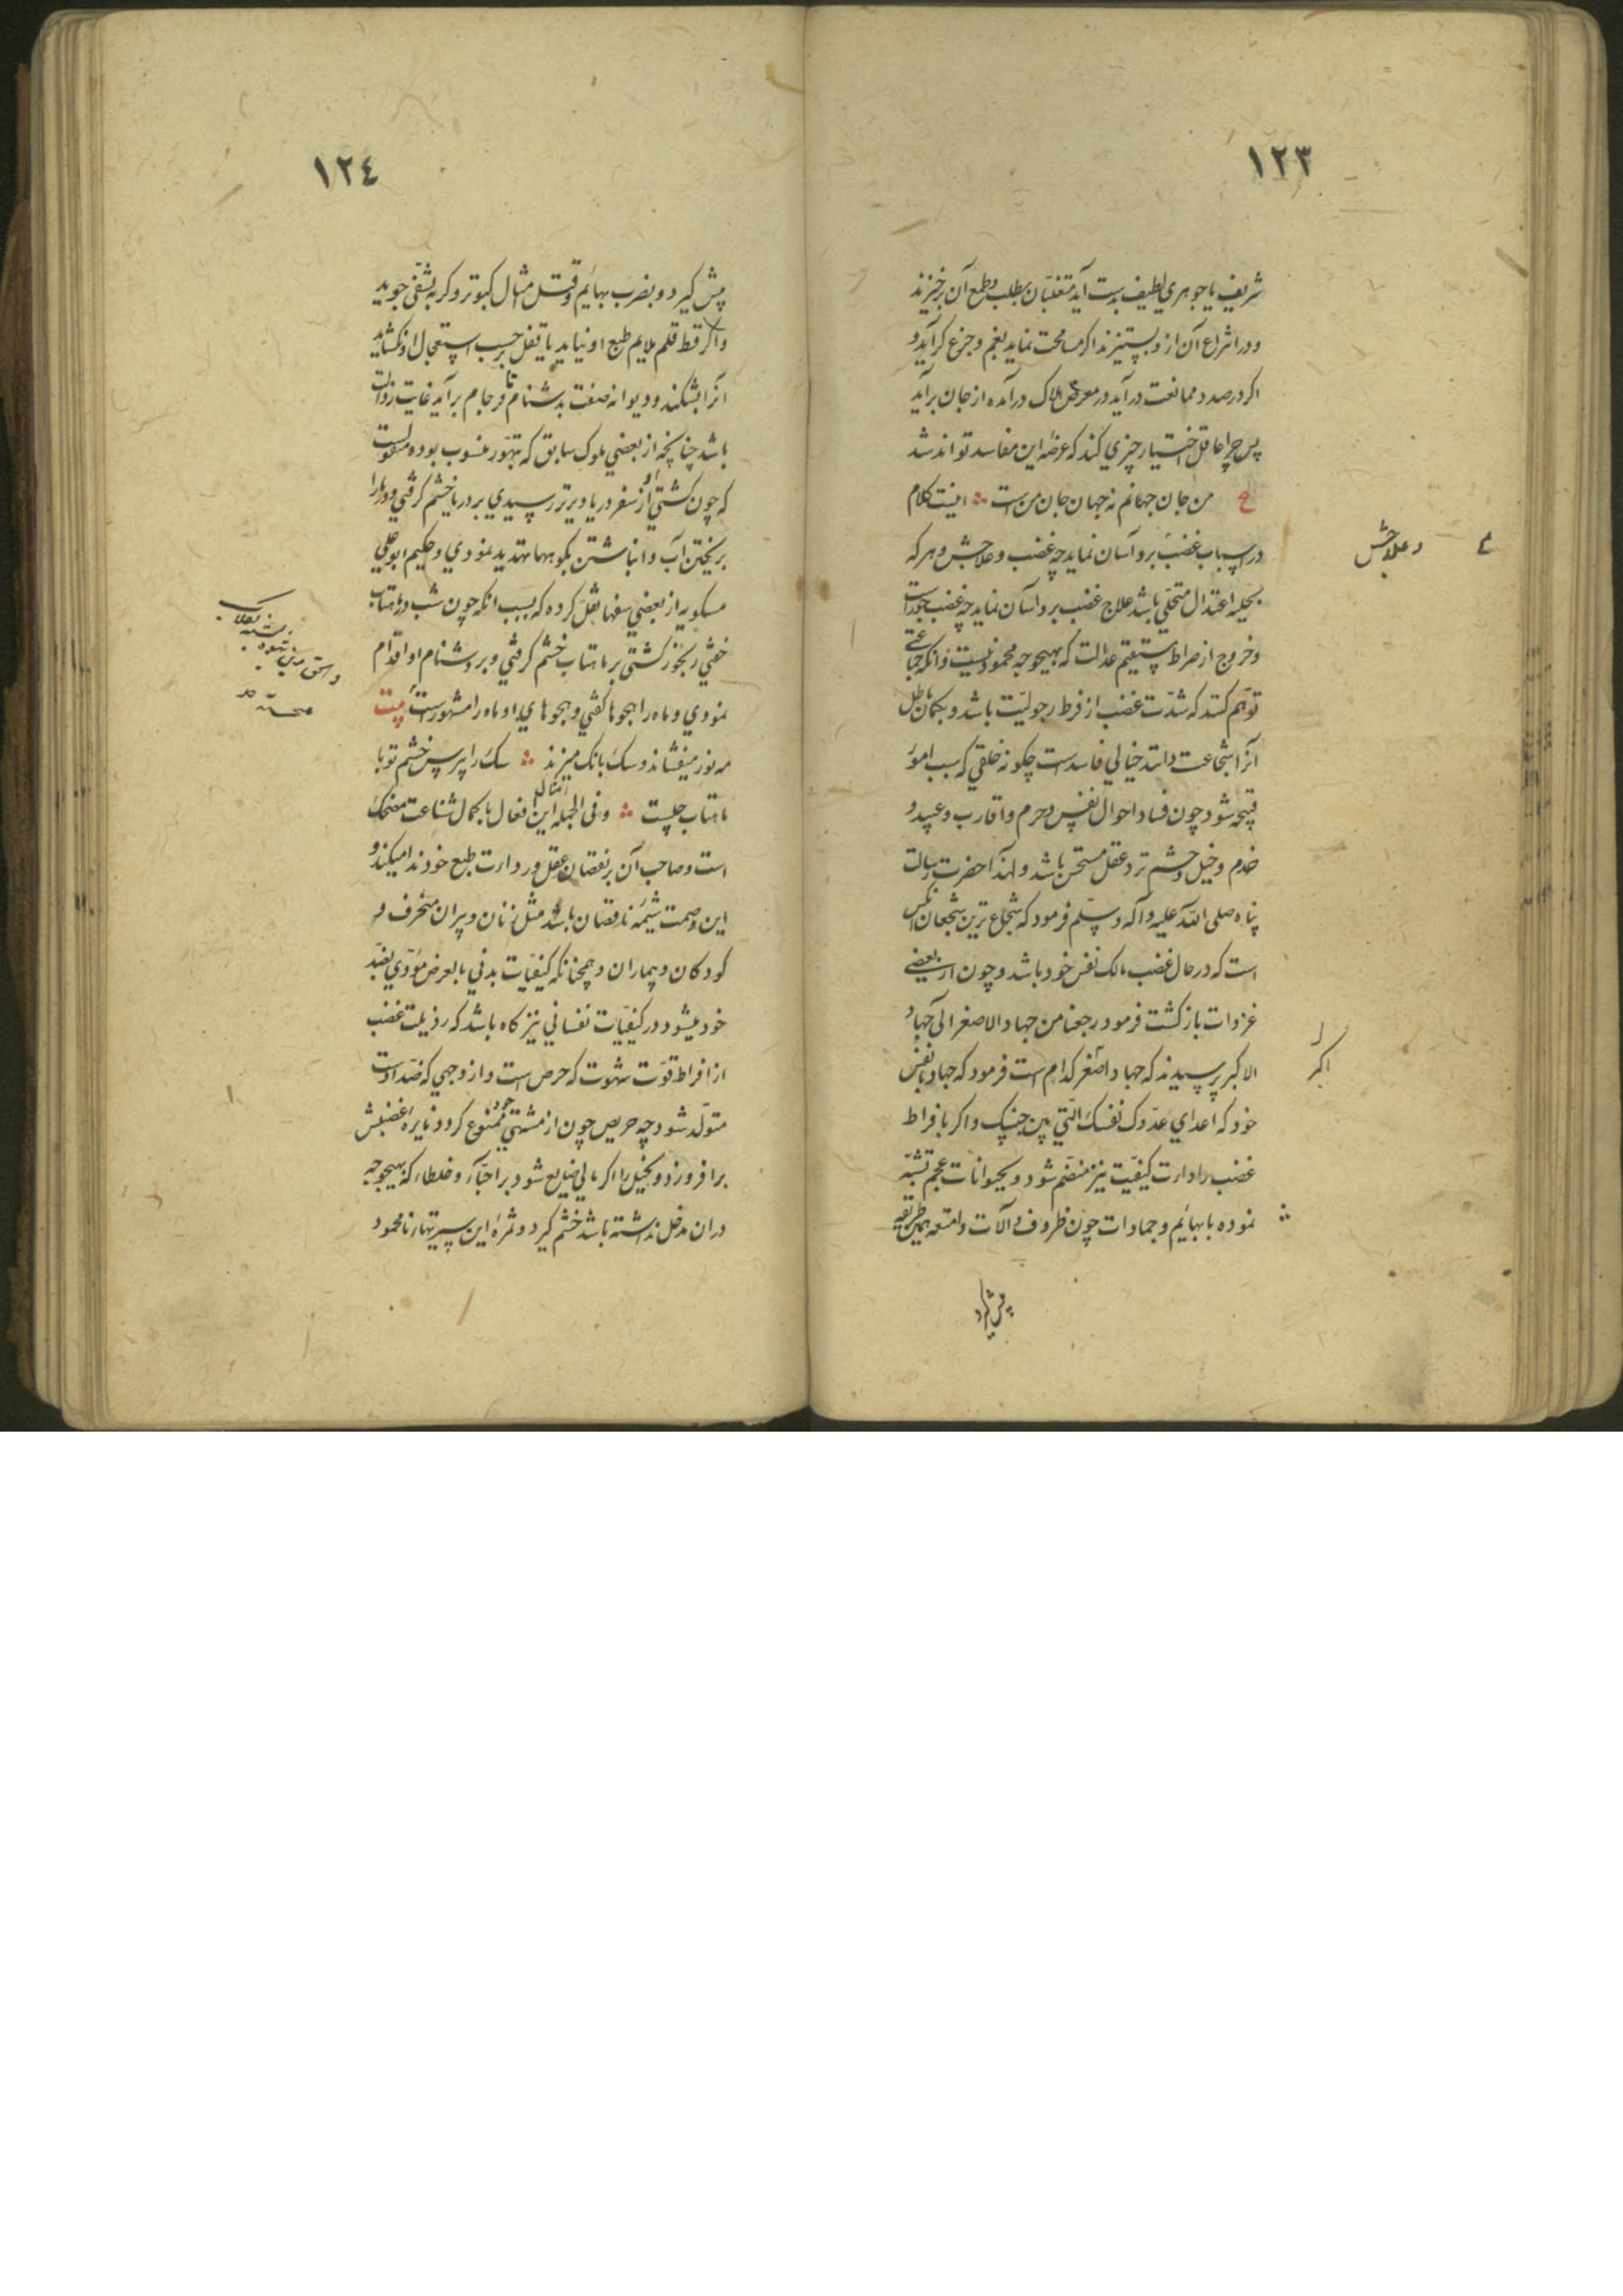 ١٢٣
شریف یا جوهري لطیف بدست آید متغلبان بطلب و طمع آن برخیزند
و در انتزاع آن ازو بستیزند اکر مسامحت نماید بغم و جزع کرآید و
اکر در صدد ممانعت درآید در معرض هلاک درآمده از جان برآید
پس چرا عاقل اختیار چیزي کند که عرضه این مفاسد تواند شد
ع من جان جهانم نه جهان جان من است ؞ اینست کلام
در اسباب غضب برو آسان نماید چه غضب و علاجش و هر که
و علاجش
بحلیه اعتدال متحلی باشد علاج غضب برو آسان نماید چه غضب جورست
و خروج از صراط مستقیم عدالت که بهیچوجه محمود نیست و انکه جماعتی
توهم کنند که شدّت غضب از فرط رجولیّت باشد و بکمان باطل
آنرا شجاعت دانند خیالي فاسدست چکونه خلقي که سبب امور
قبیحه شود چون فساد احوال نفس و حرم و اقارب و عبید و
خدم و خیل و حشم نزد عقل مستحسن باشد و لهذا حضرت رسالت
پناه صلی الله علیه و آله و سلّم فرمود که شجاع ترین شجعان انکس
است که در حال غضب مالک نفس خود باشد و چون از بعضی
غزوات بازکشت فرمود رجعنا من جهاد الاصغر الی جهاد
الاکبر پرسیدند که جهاد اصغر کدام است فرمود که جهاد با نفس
اکبر
خود که اعداي عدّوک نفسک الّتي بین جنبیک و اکر با فراط
غضب رداءت کیفیّت نیز منضم شود و بحیوانات عجم تشبّه
نموده با بهائیم و جمادات چون ظروف و آلات و امتعه همین طریقه
پیش کیرد
١٢٤
پیش کیرد و بضرب بهائیم و قتل امثال کبوتر و کربه تشفّی جوید
و اکر قط قلم ملایم طبع او نیاید یا قفل بر حسب استعجال او نکشاید
آنرا بشکند و دیوانه صفت بدشنام نافرجام برآید غایت رذالت
باشد چنانچه از بعضي ملوک سابق که بتهوّر منسوب بوده منقولست
که چون کشتی او از سفر دریا دیرتر رسیدي بر دریا خشم کرفتي و دریا را
بریختن آب و انباشتن بکوهها تهدید نمودي و حکیم ابو علي
مسکویه از بعضي سفها نقل کرده که بسبب انکه چون شب در ماهتاب
خفتي رنجور کشتی بر ماهتاب خشم کرفتي و بر دشنام او اقدام
نمودي و ماه را هجوها کفتي و هجوهاي او ماه را مشهورست بیت
مه نور میفشاند و سک بانک میزند ؞ سک را بپرس خشم تو با
ماهتاب چیست ؞ و فی الجمله امثال این افعال با کمال شناعت مضحک
است و صاحب آن بر نقصان عقل و رداءت طبع خود ندا میکند و
این وصمت شیمه ناقصان باشد مثل زنان و پیران منخرف و
کودکان و بیماران و همچنانکه کیفیّات بدني بالعرض مؤدّي بضد
خود میشود در کیفیّات نفساني نیز کاه باشد که رذیلت غضب
از افراط قوّت شهوت که حرص است و از وجهي که ضد اوست
متولّد شود چه حریص چون از مشتهي خود ممنوع کردد نایره غضبش
برافروزد و بخیل را اکر مالي ضایع شود بر احبّاء و خلطاء که بهیچوجه
در ان مدخل نداشته باشد خشم کیرد و ثمره این سیرتهاء نامحمود